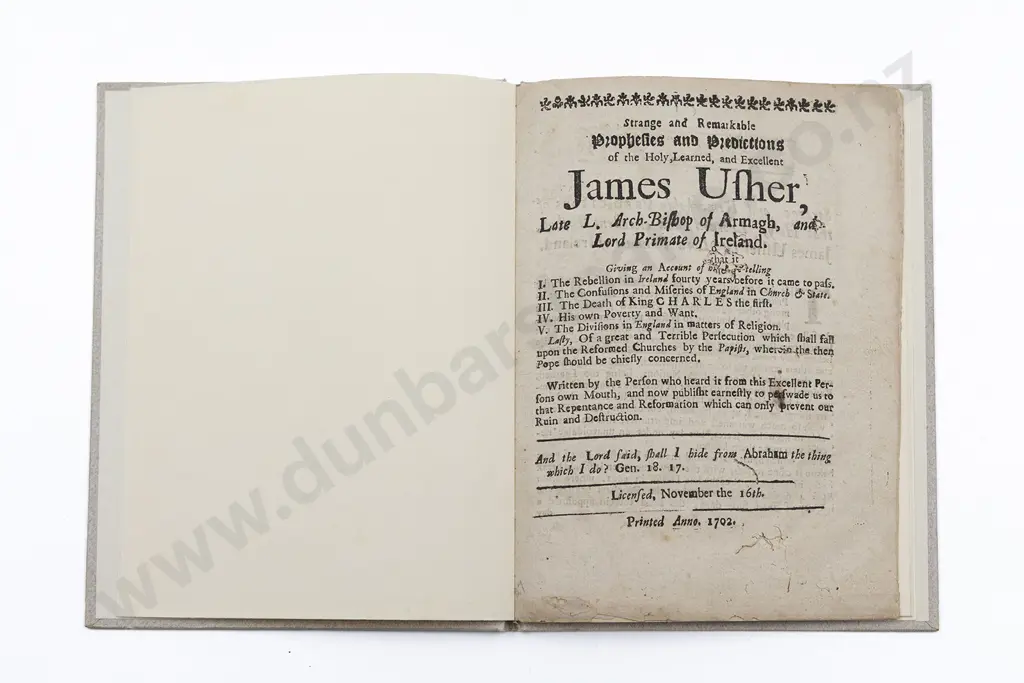 Strange and Remarkable
Prophesies and Predictions
of the Holy, Learned, and Excellent
James Uſher,
Late L. Arch-Biſhop of Armagh, and
Lord Primate of Ireland.
Giving an Account of his foretelling
I. The Rebellion in Ireland fourty years before it came to paſs.
II. The Confuſions and Miſeries of England in Church & State.
III. The Death of King CHARLES the firſt.
IV. His own Poverty and Want.
V. The Diviſions in England in matters of Religion.
Laſty, Of a great and Terrible Perſecution which ſhall fall
upon the Reformed Churches by the Papiſts, wherein the then
Pope ſhould be chiefly concerned.
Written by the Perſon who heard it from this Excellent Per-
ſons own Mouth, and now publiſht earneſtly to perſwade us to
that Repentance and Reformation which can only prevent our
Ruin and Deſtruction.
And the Lord ſaid, ſhall I hide from Abraham the thing
which I do? Gen. 18. 17.
Licenſed, November the 16th.
Printed Anno. 1702.